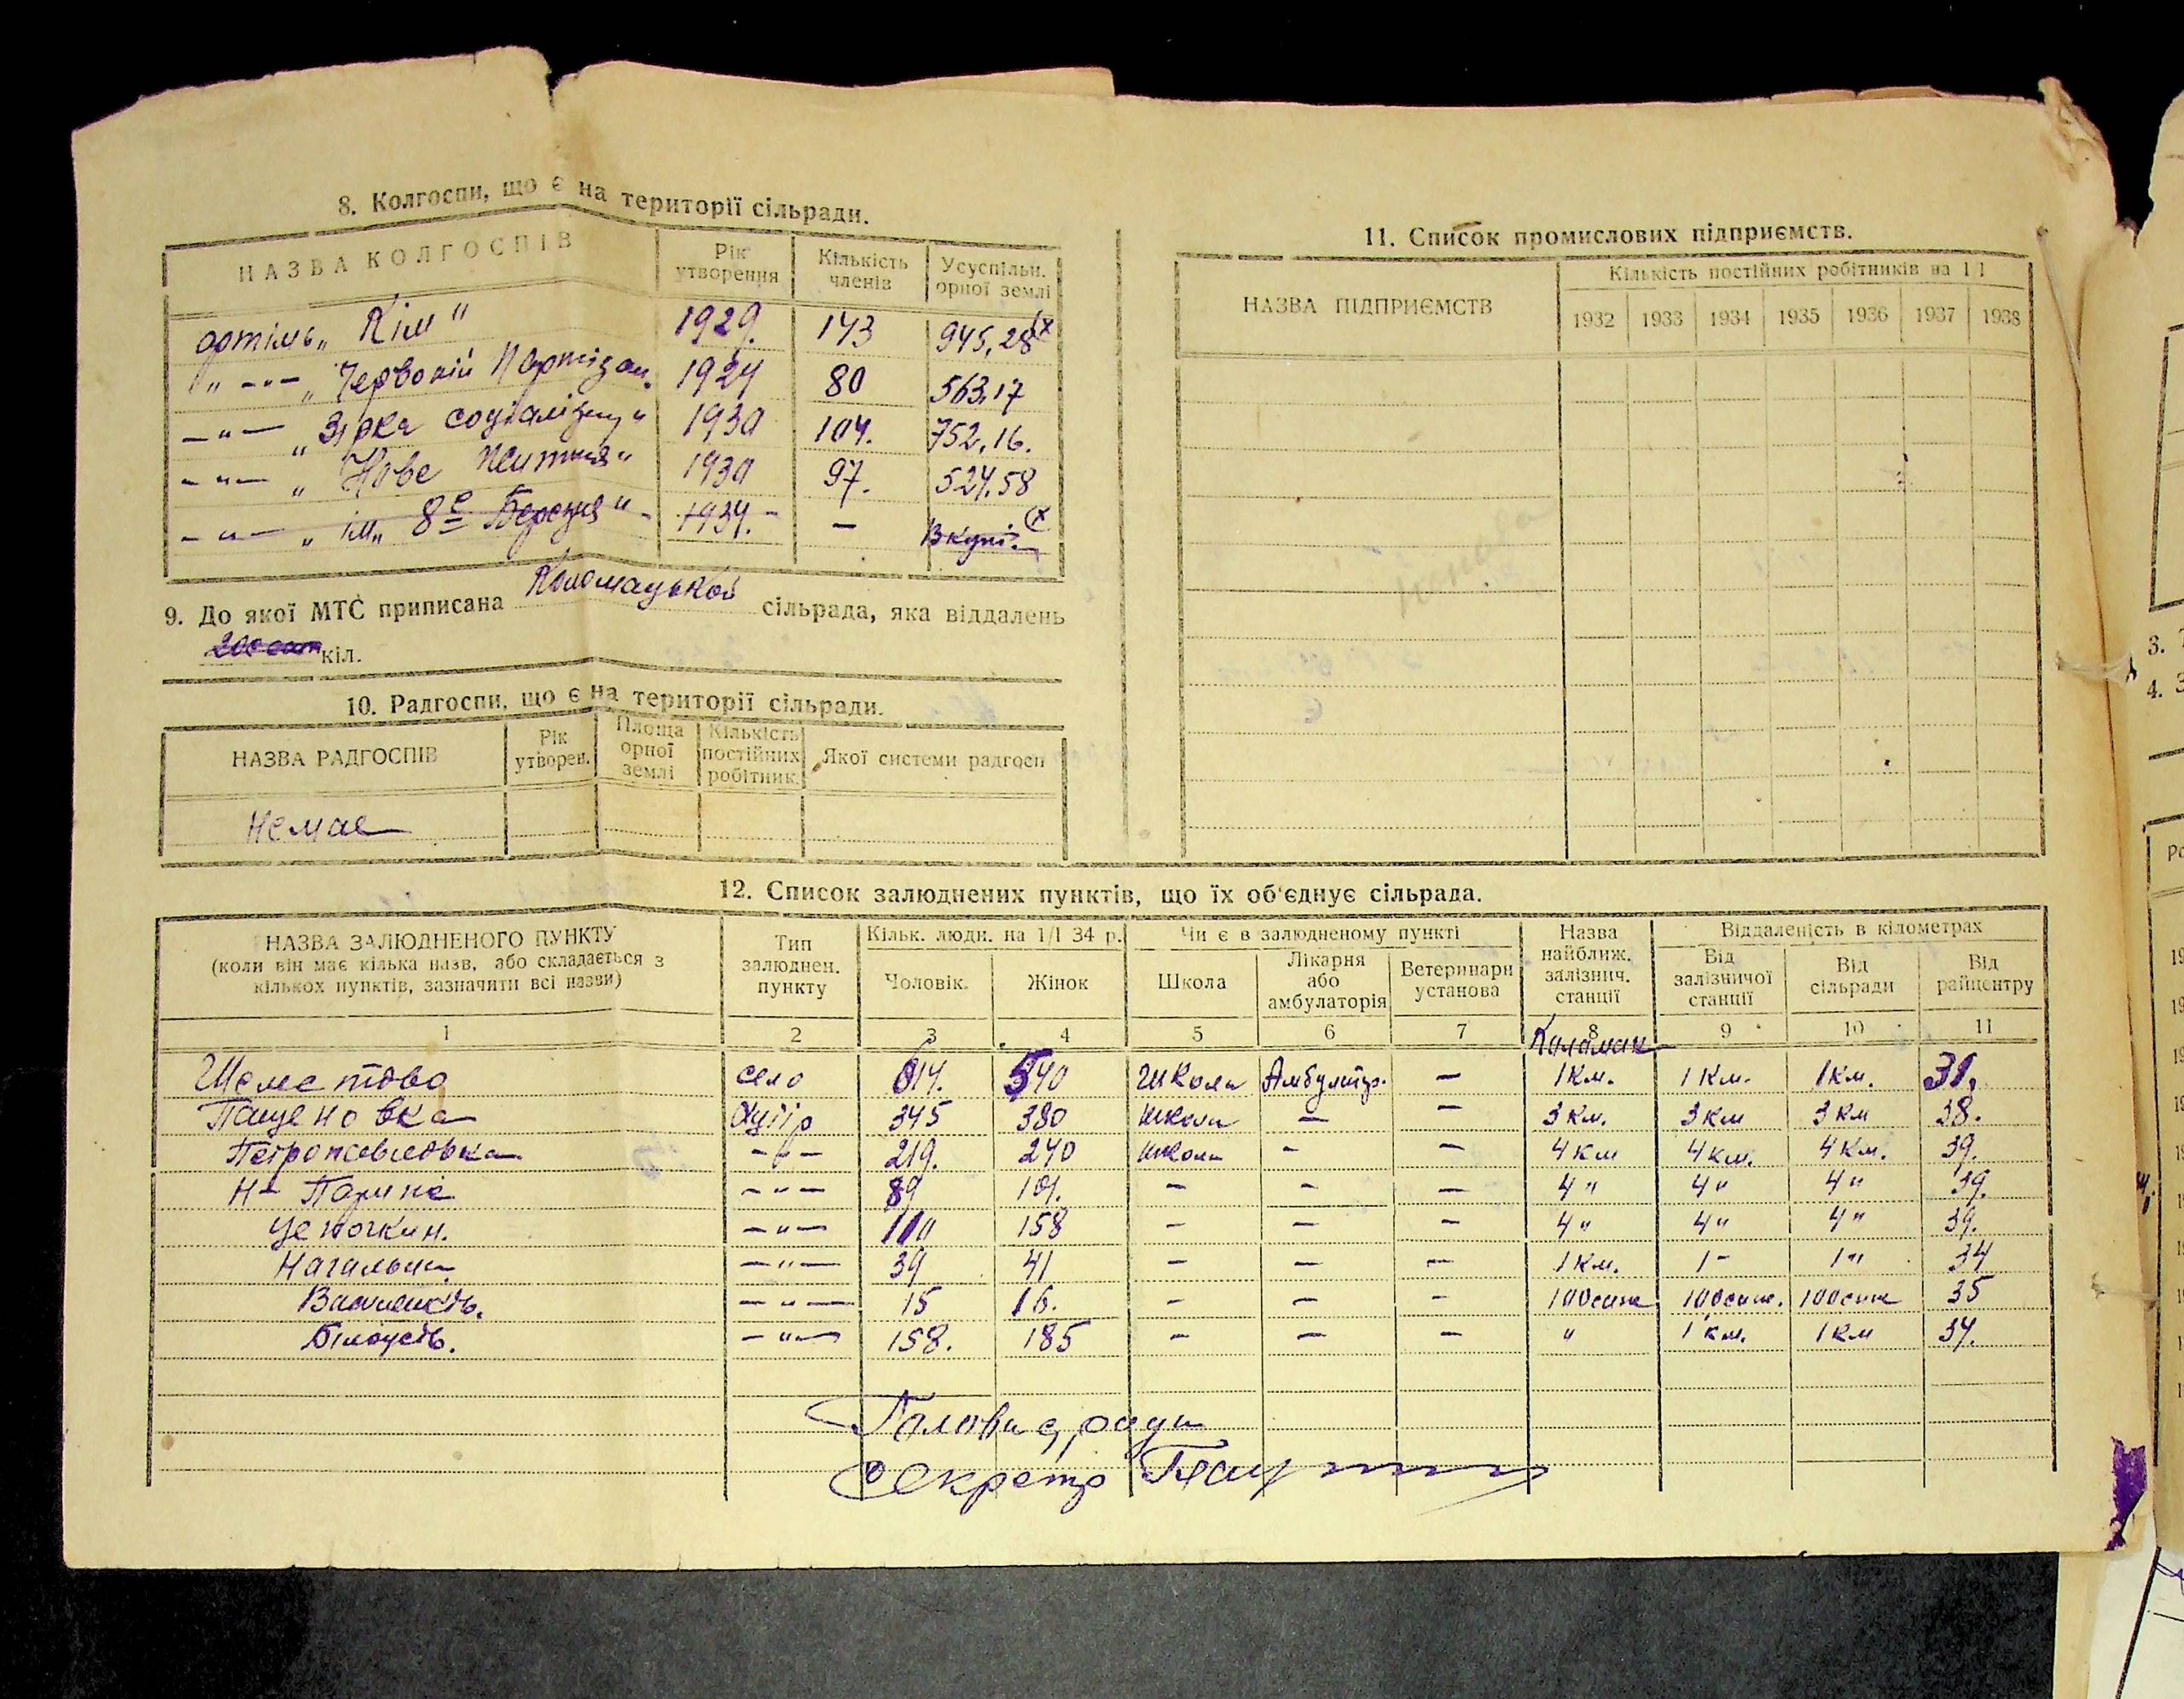 8. Колгоспи, що є на території сільради.
НАЗВА КОЛГОСПІВ | Рік утворення | Кількість членів | Усуспільн. орної землі
артіль „Кім“ 1929. 143 945,28 (х
„ -"- „Червоній Партізан. 1924 80 563,17
-"- „Зірка соціалізму“ 1930 104. 752,16.
-"- „Нове Життя“ 1930 97. 524.58
-"- „ім„ 8е Березня“ - 1934. - — Вкупі. (х
9. До якої МТС приписана Коломацькой сільрада, яка віддалень
кіл.
10. Радгоспи, що є на території сільради.
НАЗВА РАДГОСПІВ | Рік утворен. | Площа орної землі | Кількість постійних робітник. | Якої системи радгосп
Немае
11. Список промислових підприємств.
НАЗВА ПІДПРИЄМСТВ | Кількість постійних робітників на 1/1
1932 1933 1934 1935 1936 1937 1938
12. Список залюднених пунктів, що їх об‘єднує сільрада.
НАЗВА ЗАЛЮДНЕНОГО ПУНКТУ (коли він має кілька назв, або складається з кількох пунктів, зазначити всі назви) | Тип залюднен. пункту | Кільк. людн. на 1/1 34 р. | Чи є в залюдненому пункті | Назва найближ. залізнич. станції | Віддаленість в кілометрах
Чоловік. | Жінок | Школа | Лікарня або амбулаторія | Ветеринарн установа | Від залізничої станції | Від сільради | Від райцентру
1 2 3 4 5 6 7 8 9 10 11
Коломак
Шелестово село 614. 540 школа Амбулатор. — 1км. 1км. 1км. 31,
Пащеновка Хутір 345 380 школа — — 3км. 3км 3км 38.
Петропавловка -"- 219. 240 школа - — 4км 4км. 4км. 39.
-"- 89 101. — - — 4" 4" 4" 39.
Цепочкин. -"- 110 158 - — - 4" 4" 4" 39.
Нагальн. -"- 39 41 - — — 1км. 1- 1" 34
-"- 15 16. - — - 100саж 100саж. 100саж 35
Білоусів. -"- 158. 185 - — — " 1км. 1км 34.
Голова с/ради
Секретр